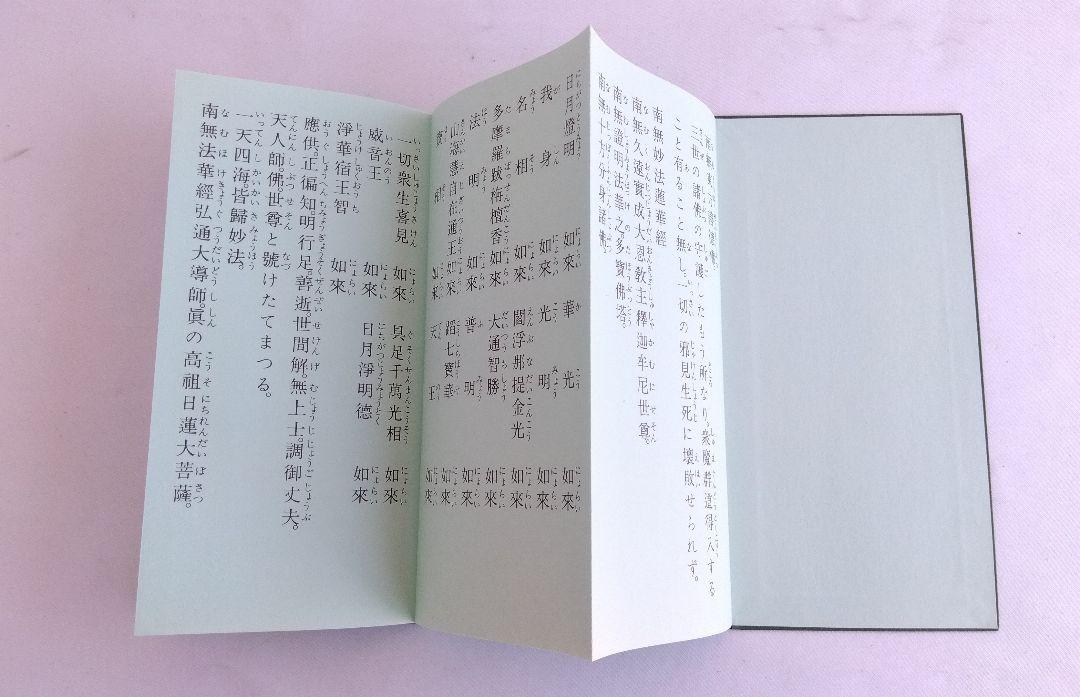 三世の諸佛の守護したもう所なり。衆魔群道得入する
こと有ること無し。一切の邪見生死に壞敗せられず。
南無妙法蓮華經
南無久遠實成大恩教主釋迦牟尼世尊。
南無證明法華之多寶佛塔。
南無十方分身諸佛。
日月燈明 如來 華光 如來
我身 如來 光明 如來
名相 如來 閻浮那提金光 如來
多摩羅跋栴檀香 如來 大通智勝 如來
法明 如來 普明 如來
山海慧自在通王 如來 蹈七寶華 如來
寶相 如來 天王 如來
一切衆生喜見 如來 具足千萬光相 如來
威音王 如來 日月淨明德 如來
淨華宿王智 如來
應供。正徧知。明行足。善逝。世間解。無上士。調御丈夫。
天人師佛。世尊と號けたてまつる。
一天四海。皆歸妙法。
南無法華經弘通大導師。眞の高祖日蓮大菩薩。